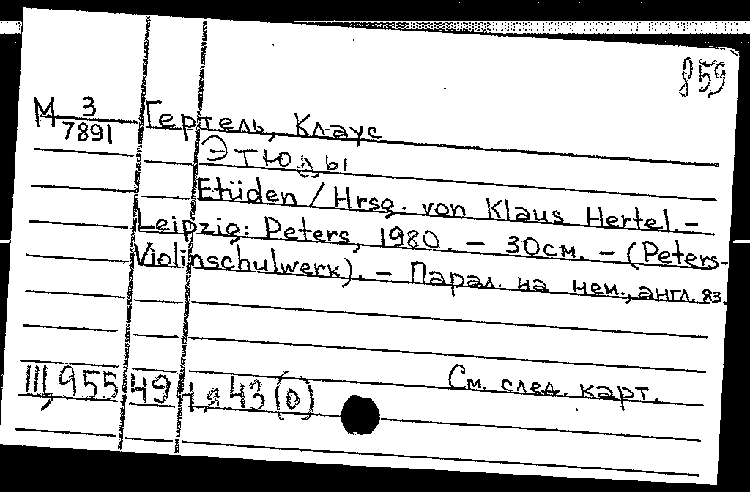 859
М 3/7891 Гертель, Клаус
Этюды
Etüden / Hrsg. von Klaus Hertel. –
Leipzig: Peters, 1980. – 30см. – (Peters-
Violinschulwerk). – Парал. на нем., англ. яз.
См. след. карт.
III, 955 494 я 43 (0)